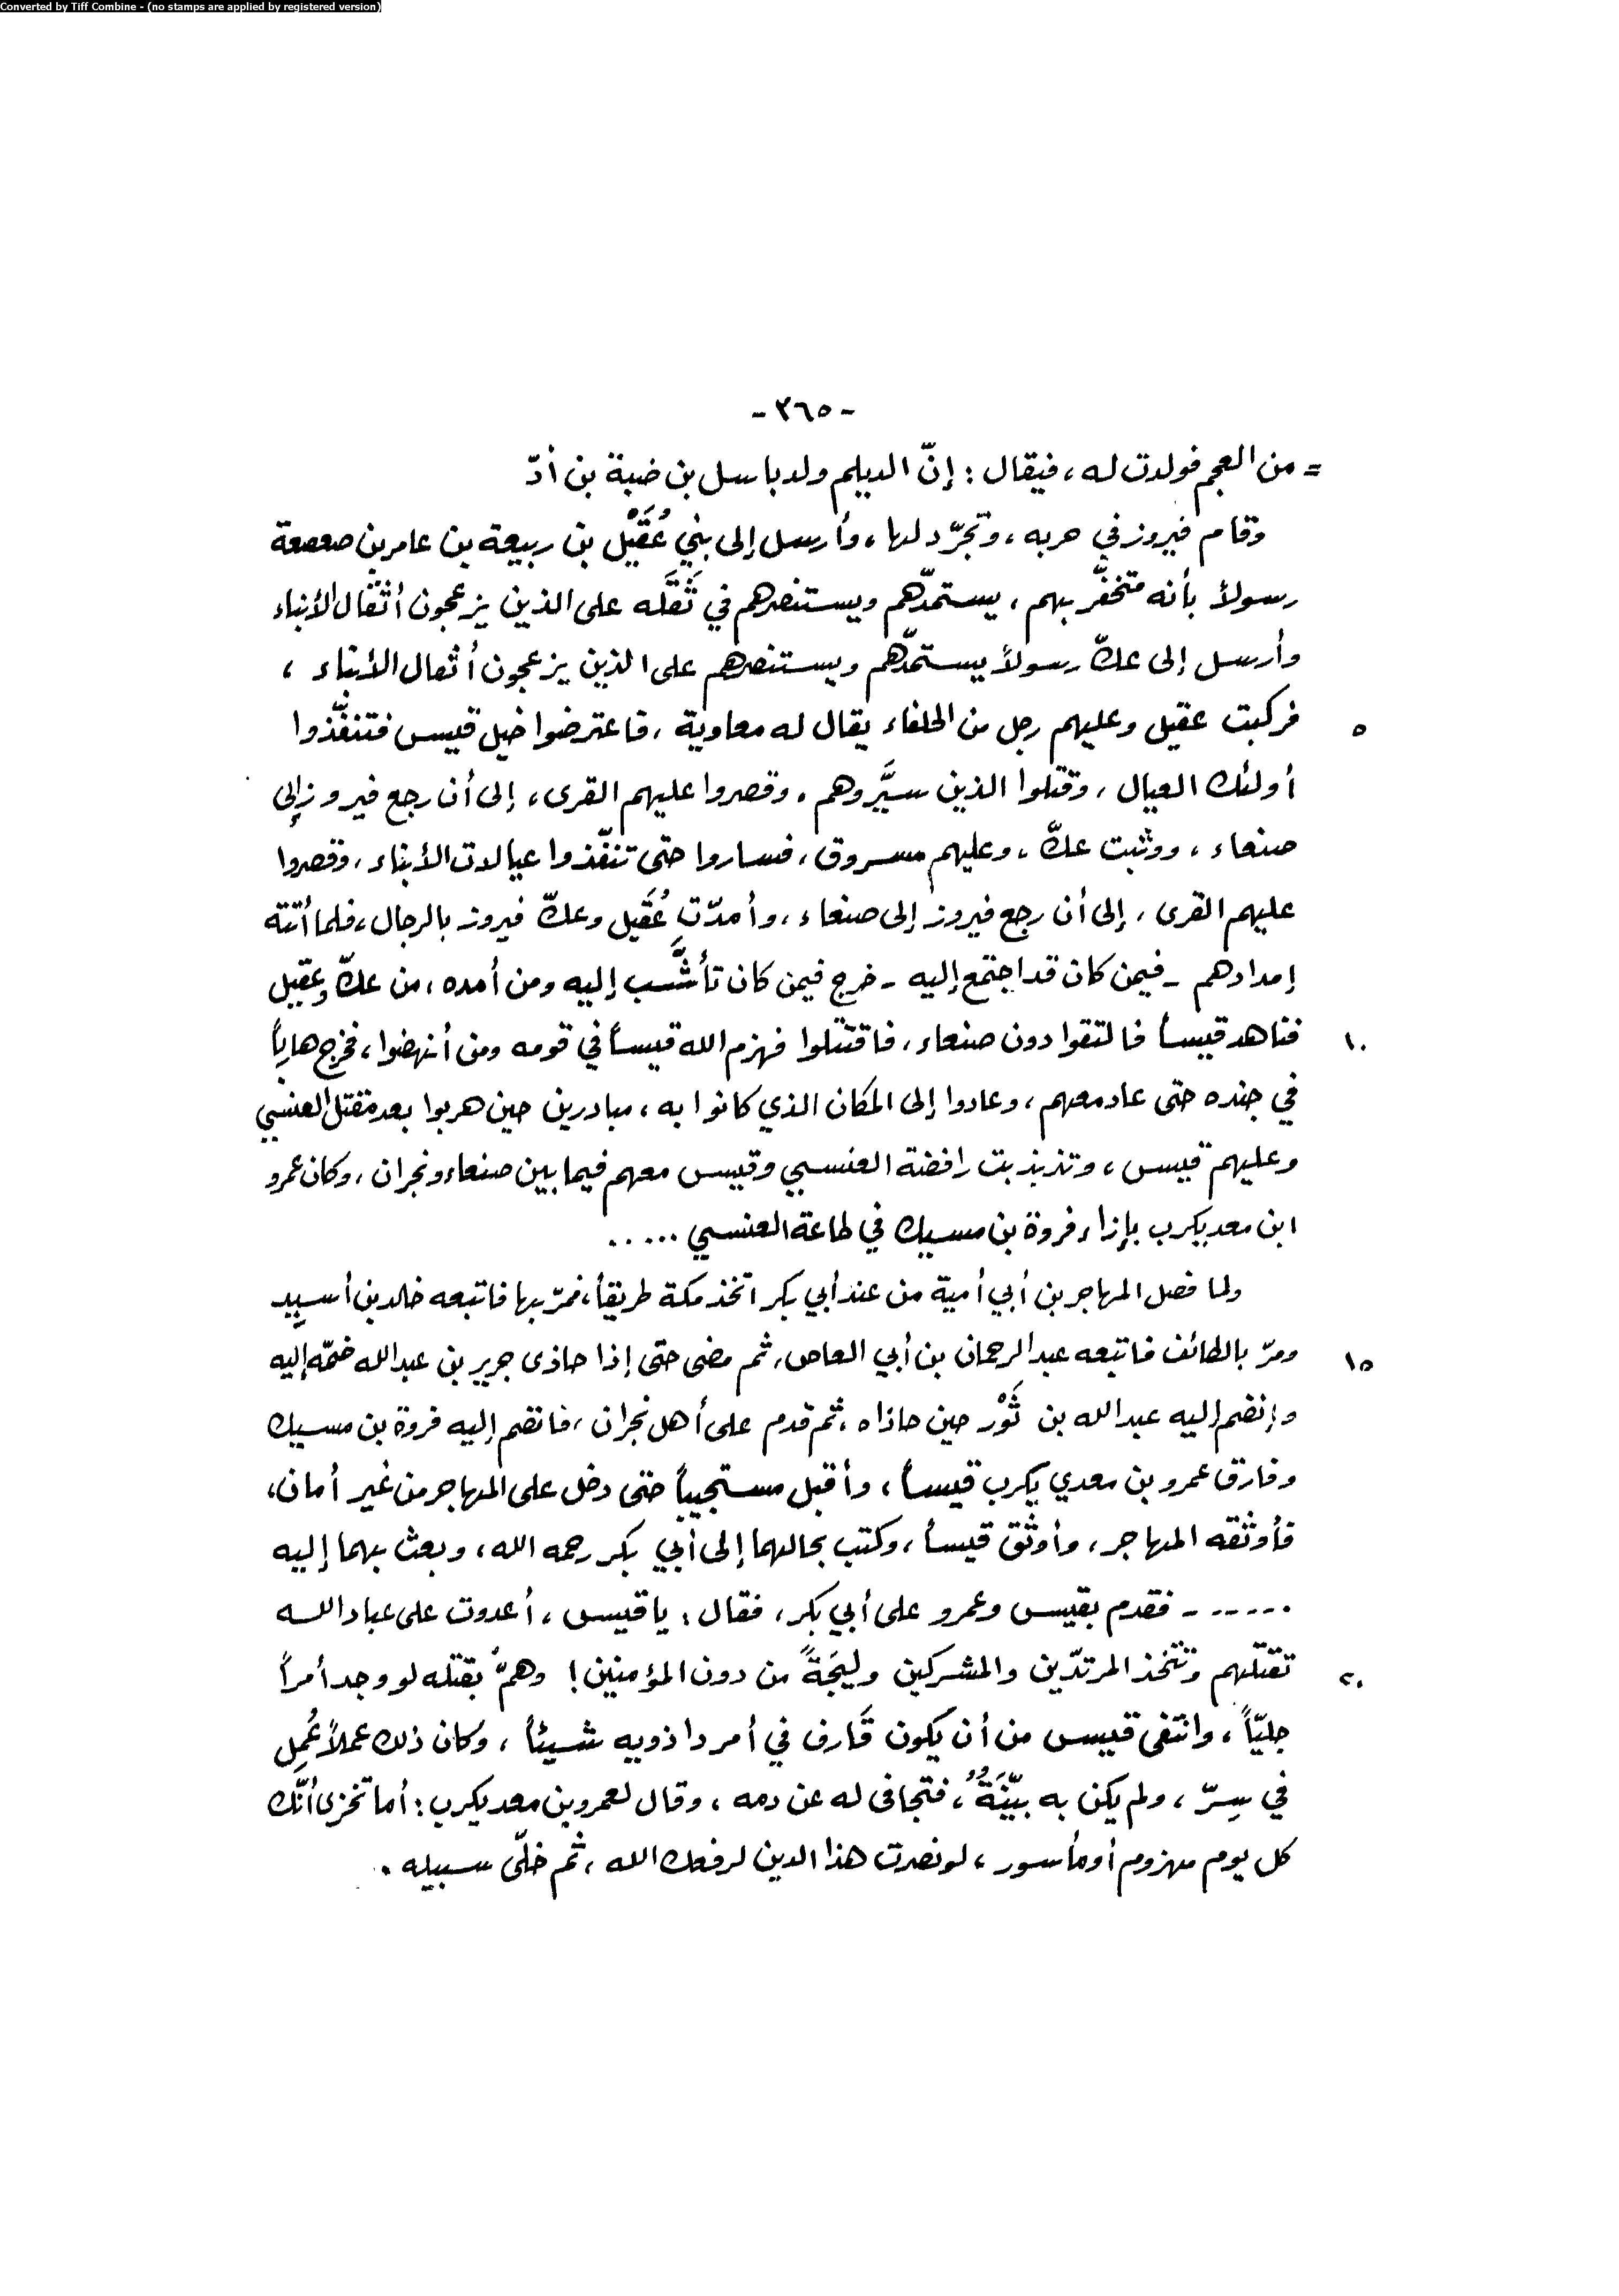 Converted by Tiff Combine - (no stamps are applied by registered version)
- ٣٦٥ -
= من العجم فولدت له ، فيقال : إنّ الديلم ولد باسل بن ضبة بن أدّ
وقام فيروز في حربه ، وتجرّد لها ، وأرسل إلى بني عُقَيْل بن ربيعة بن عامر بن صعصعة
رسولاً بأنه متخفّر بهم ، يستمدّهم ويستنصرهم في ثَقَله على الذين يزعجون أثقال الأبناء
وأرسل إلى عكّ رسولاً يستمدّهم ويستنصرهم على الذين يزعجون أثقال الأبناء ،
٥ فركبت عقيل وعليهم رجل من الحلفاء يقال له معاوية ، فاعترضوا خيل قيس فتنفَّذوا
أولئك العيال ، وقتلوا الذين سيَّروهم ، وقصروا عليهم القرى ، إلى أن رجع فيروز إلى
صنعاء ، ووثبت عكّ ، وعليهم مسروق ، فساروا حتى تنفّذوا عيالات الأبناء ، وقصروا
عليهم القرى ، إلى أن رجع فيروز إلى صنعاء ، وأمدّتِ عُقَيل وعكّ فيروز بالرجال ، فلما أتته
إمدادهم - فيمن كان قد اجتمع إليه - خرج فيمن كان تأشَّب إليه ومن أمده ، من عكّ وعقيل
١٠ فناهد قيساً فالتقوا دون صنعاء ، فاقتتلوا فهزم الله قيساً في قومه ومن أنهضوا ، فخرج هارباً
في جنده حتى عاد معهم ، وعادوا إلى المكان الذي كانوا به ، مبادرين حين هربوا بعد مقتل العنسي
وعليهم قيس ، وتذبذبت رافضة العنسي وقيس معهم فيما بين صنعاء ونجران ، وكان عمرو
ابن معديكرب بإزاء فروة بن مسيك في طاعة العنسي .....
ولما فصل المهاجر بن أبي أمية من عند أبي بكر اتخذ مكة طريقاً ، فمرّ بها فاتبعه خالد بن أسيد
١٥ ومرّ بالطائف فاتبعه عبد الرحمان بن أبي العاص ، ثم مضى حتى إذا حاذى جرير بن عبد الله ضمّه إليه
وإنضم إليه عبد الله بن ثَوْر حين حاذاه ، ثم قدم على أهل نجران ، فانضم إليه فروة بن مسيك
وفارق عمرو بن معدي يكرب قيساً ، وأقبل مستجيباً حتى دخل على المهاجر من غير أمان ،
فأوثقه المهاجر ، وأوثق قيساً ، وكتب بحالهما إلى أبي بكر رحمه الله ، وبعث بهما إليه
...... فقدم بقيس وعمرو على أبي بكر ، فقال : يا قيس ، أعدوت على عباد الله
٢٠ تقتّلهم وتتّخذ المرتدّين والمشركين وليجَةً من دون المؤمنين ! وهمّ بقتله لو وجد أمراً
جليّاً ، وانتفى قيس من أن يكون قَارف في أمر داذويه شيئاً ، وكان ذلك عملاً عُمِل
في سِرّ ، ولم يكن به بيّنَةٌ ، فتجافى له عن دمه ، وقال لعمرو بن معديكرب : أما تخزى أنَّك
كل يوم مهزوم أو مأسور ، لو نصرت هذا الدين لرفعك الله ، ثم خلّى سبيله .